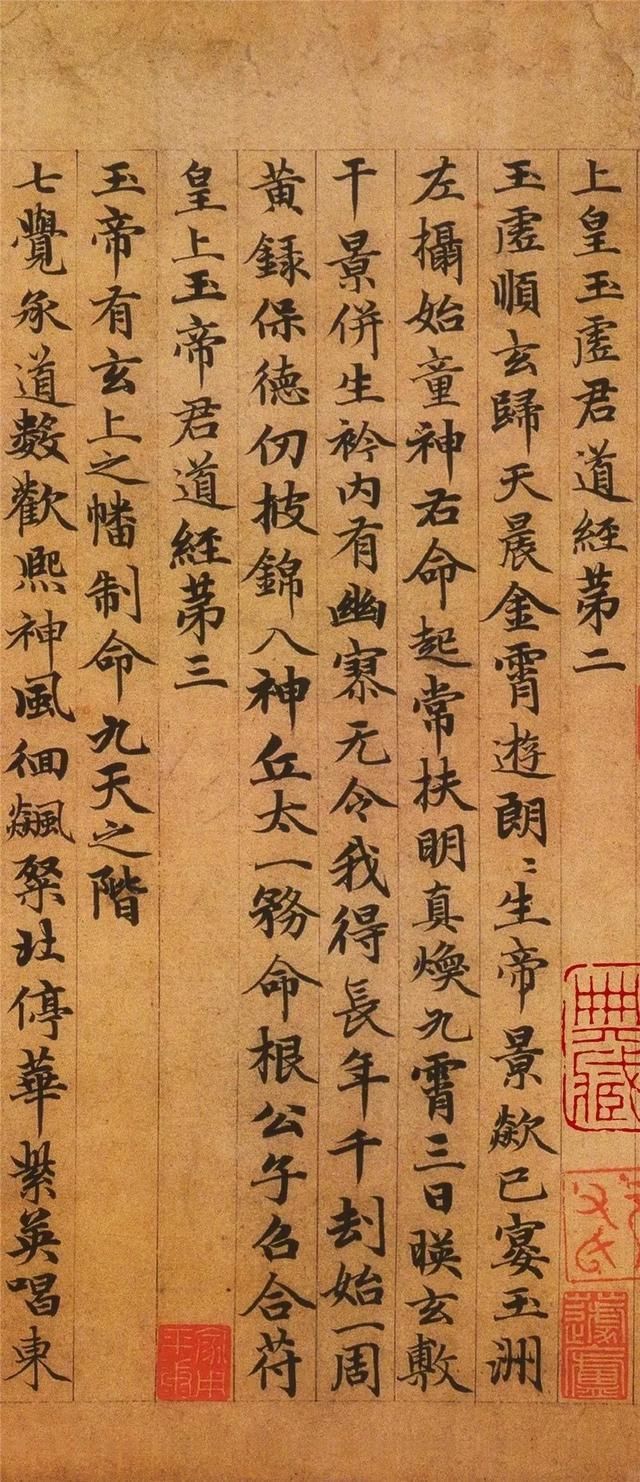 上皇玉虛君道經苐二
玉虛順玄歸天晨金霄遊朗〻生帝景歘已宴玉洲
左攝始童神右命起常扶明真煥九霄三日暎玄敷
干景併生衿内有幽寥无令我得長年千刦始一周
黄録保德仞披錦入神丘太一務命根公子召合符
皇上玉帝君道經苐三
玉帝有玄上之幡制命九天之階
七覺承道數歡熙神風徊飈粲壯停華紫英唱東
典藏